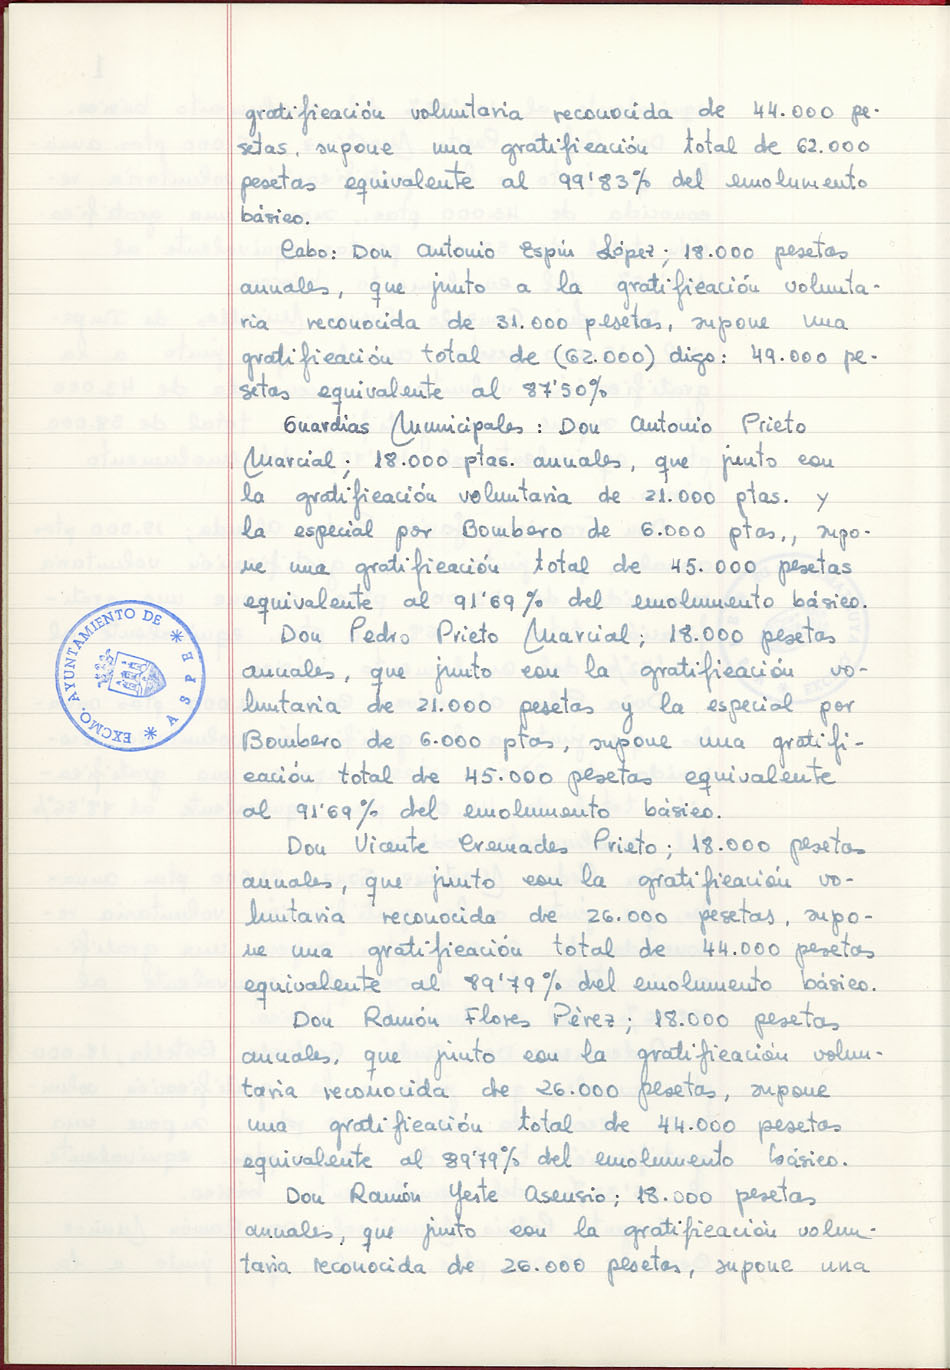 gratificación voluntaria reconocida de 44.000 pe-
setas, supone una gratificación total de 62.000
pesetas equivalente al 99'83% del emolumento
básico.
Cabo: Don Antonio Espín López; 18.000 pesetas
anuales, que junto a la gratificación volunta-
ria reconocida de 31.000 pesetas, supone una
gratificación total de (62.000) digo: 49.000 pe-
setas equivalente al 87'50%
Guardias Municipales: Don Antonio Prieto
Marcial; 18.000 ptas. anuales, que junto con
la gratificación voluntaria de 21.000 ptas. y
la especial por Bombero de 6.000 ptas,, supo-
ne una gratificación total de 45.000 pesetas
equivalente al 91'69% del emolumento básico.
Don Pedro Prieto Marcial; 18.000 pesetas
anuales, que junto con la gratificación vo-
luntaria de 21.000 pesetas y la especial por
Bombero de 6.000 ptas, supone una gratifi-
cación total de 45.000 pesetas equivalente
al 91'69% del emolumento básico.
Don Vicente Cremades Prieto; 18.000 pesetas
anuales, que junto con la gratificación vo-
luntaria reconocida de 26.000 pesetas, supo-
ne una gratificación total de 44.000 pesetas
equivalente al 89'79% del emolumento básico.
Don Ramón Flores Pérez; 18.000 pesetas
anuales, que junto con la gratificación volun-
taria reconocida de 26.000 pesetas, supone
una gratificación total de 44.000 pesetas
equivalente al 89'79% del emolumento básico.
Don Ramón Yeste Asensio; 18.000 pesetas
anuales, que junto con la gratificación volun-
taria reconocida de 26.000 pesetas, supone una
EXCMO. AYUNTAMIENTO DE * ASPE *